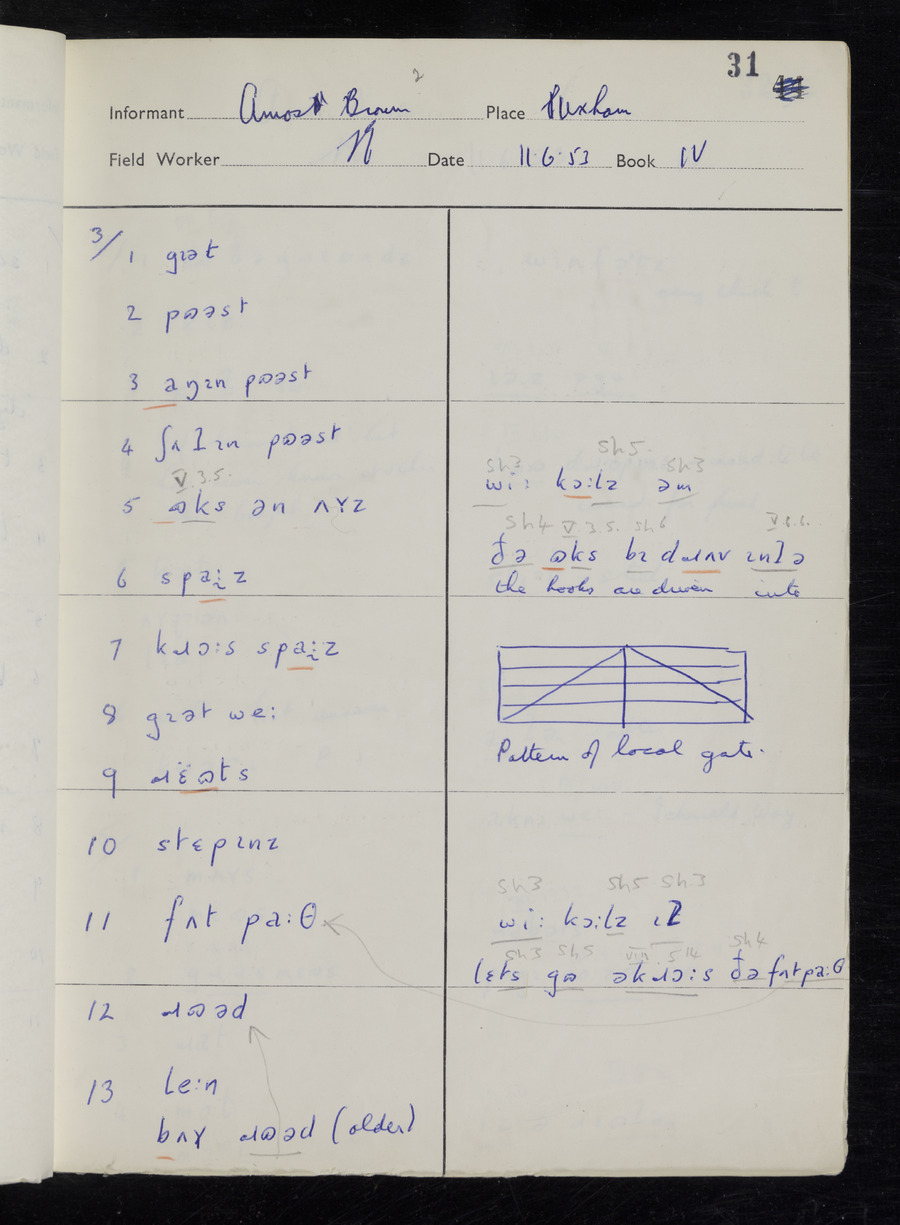 31
2
Informant Amos Brown Place Huxham
Field Worker Date 11·6·53 Book IV
3/
1 gɪət
2 pɷəst
3 aŋɪn pɷəst
4 ʃʌtɪn pɷəst
V.3.5.
5 ɷks ən ʌɤz
6 spaɪz
7 kɹɔ:s spaɪz
8 gɪət we:
9 ɹɛɷts
10 stɛpɪnz
11 fʌt pa:θ
12 ɹɷəd
13 le:n
bʌɤ ɹɷəd (older)
Sh3 Sh5. Sh3
wi: kɔ:lz əm
Sh4 V.3.5. Sh6 V.8.6.
ðə ɷks bɪ dɹʌv ɪntə
the hooks are driven into
Pattern of local gate.
Sh3 Sh5 Sh3
wi: kɔ:lz ɪt
Sh3 Sh5 Sh4
lɛts gɷ əkɹɔ:s ðə fʌtpa:θ